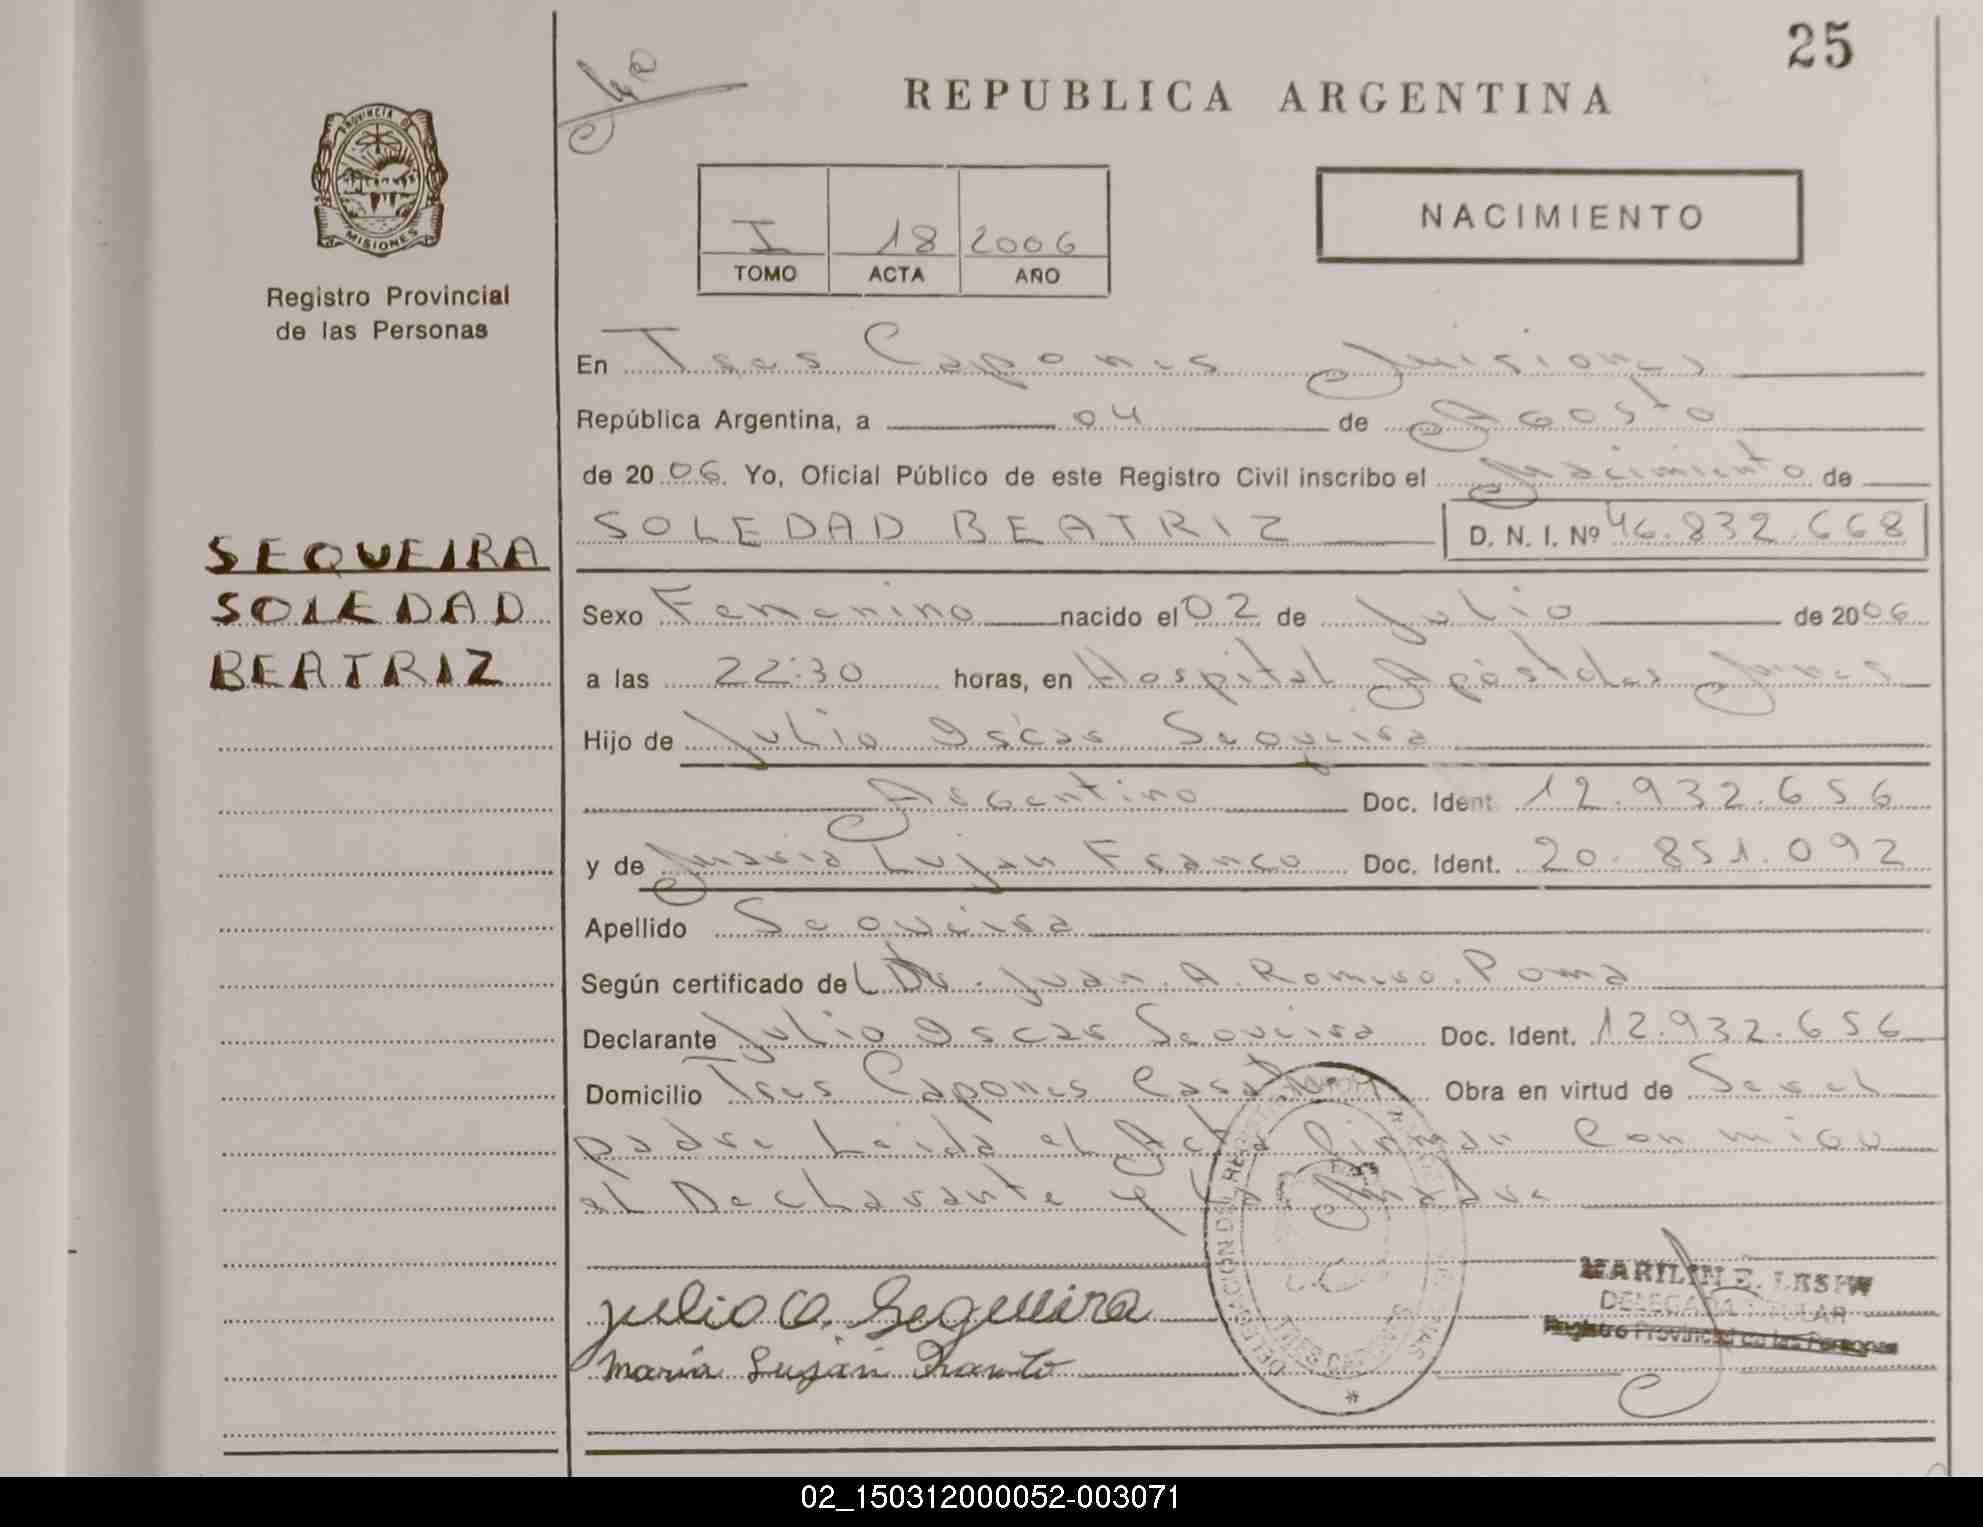 25
REPUBLICA ARGENTINA
PROVINCIA DE
MISIONES
Registro Provincial
de las Personas
I 18 2006
TOMO ACTA AÑO
NACIMIENTO
En Tres Capones Misiones
República Argentina, a 04 de Agosto
de 2006. Yo, Oficial Público de este Registro Civil inscribo el Nacimiento de
SOLEDAD BEATRIZ D. N. I. Nº 46.832.668
SEQUEIRA
SOLEDAD
BEATRIZ
Sexo Femenino nacido el 02 de Julio de 2006
a las 22:30 horas, en Hospital Apóstoles Mnes
Hijo de Julio Oscar Sequeira
Argentino Doc. Ident. 12.932.656
y de María Lujan Franco Doc. Ident. 20.851.092
Apellido Sequeira
Según certificado de Dr. Juan A. Romero Poma
Declarante Julio Oscar Sequeira Doc. Ident. 12.932.656
Domicilio Tres Capones Obra en virtud de Ser el
padre Leida el Acta Firman Conmigo
el Declarante y la Madre
julio O. Sequeira
María Luján Franco
MARILIN E.
DELEGADA TITULAR
Registro Provincial de las Personas
02_150312000052-003071